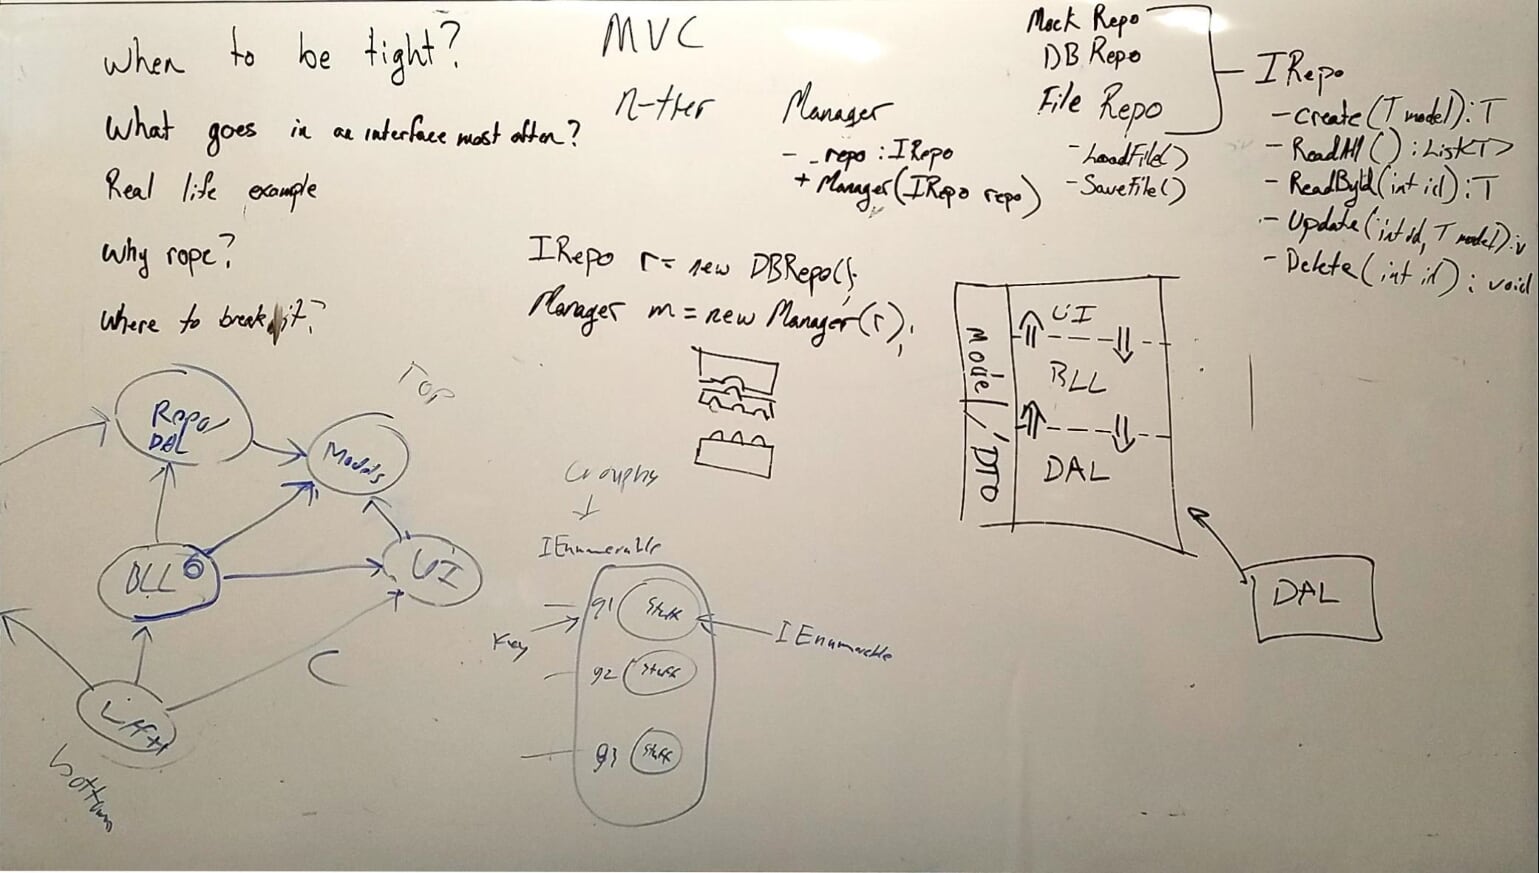 When to be tight?
What goes in an interface most often?
Real life example
Why rope?
Where to break it?
MVC
n-tier
Manager
- _repo : IRepo
+ Manager(IRepo repo)
Mock Repo
DB Repo
File Repo
- LoadFile()
- SaveFile()
IRepo
- Create(T model) : T
- ReadAll() : List<T>
- ReadById(int id) : T
- Update(int id, T model) : v
- Delete(int id) : void
IRepo r = new DBRepo();
Manager m = new Manager(r);
Model/DTO
UI
BLL
DAL
DAL
Top
Repo/
DAL
Models
BLL
UI
C
bottom
IEnumerable
Key
g1 Stuff
g2 Stuff
g3 Stuff
IEnumerable